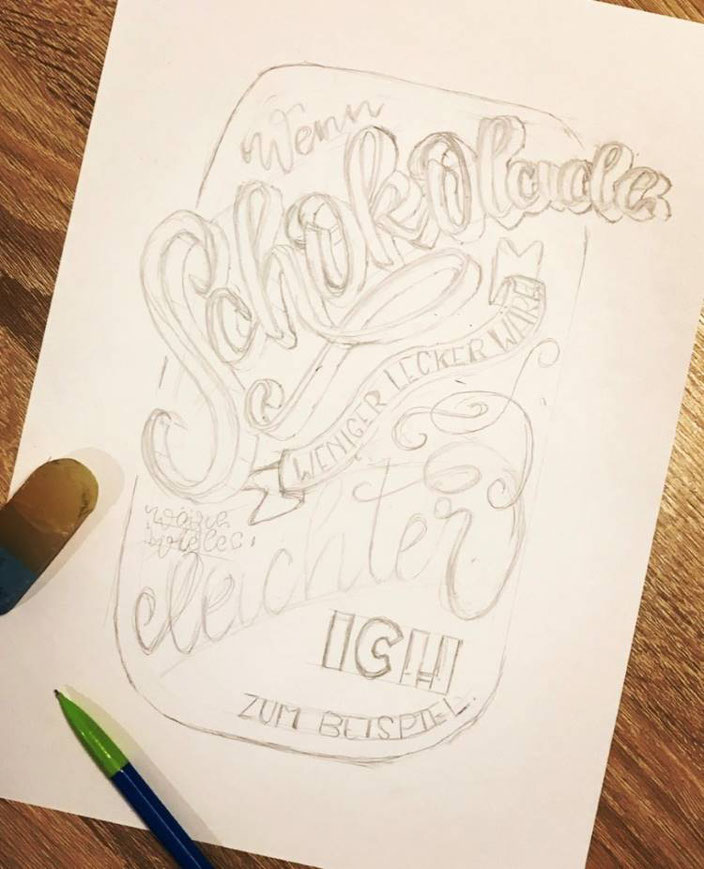 Wenn
Schokolade
WENIGER LECKER WÄRE
wäre
vieles
leichter
ICH
ZUM BEISPIEL.